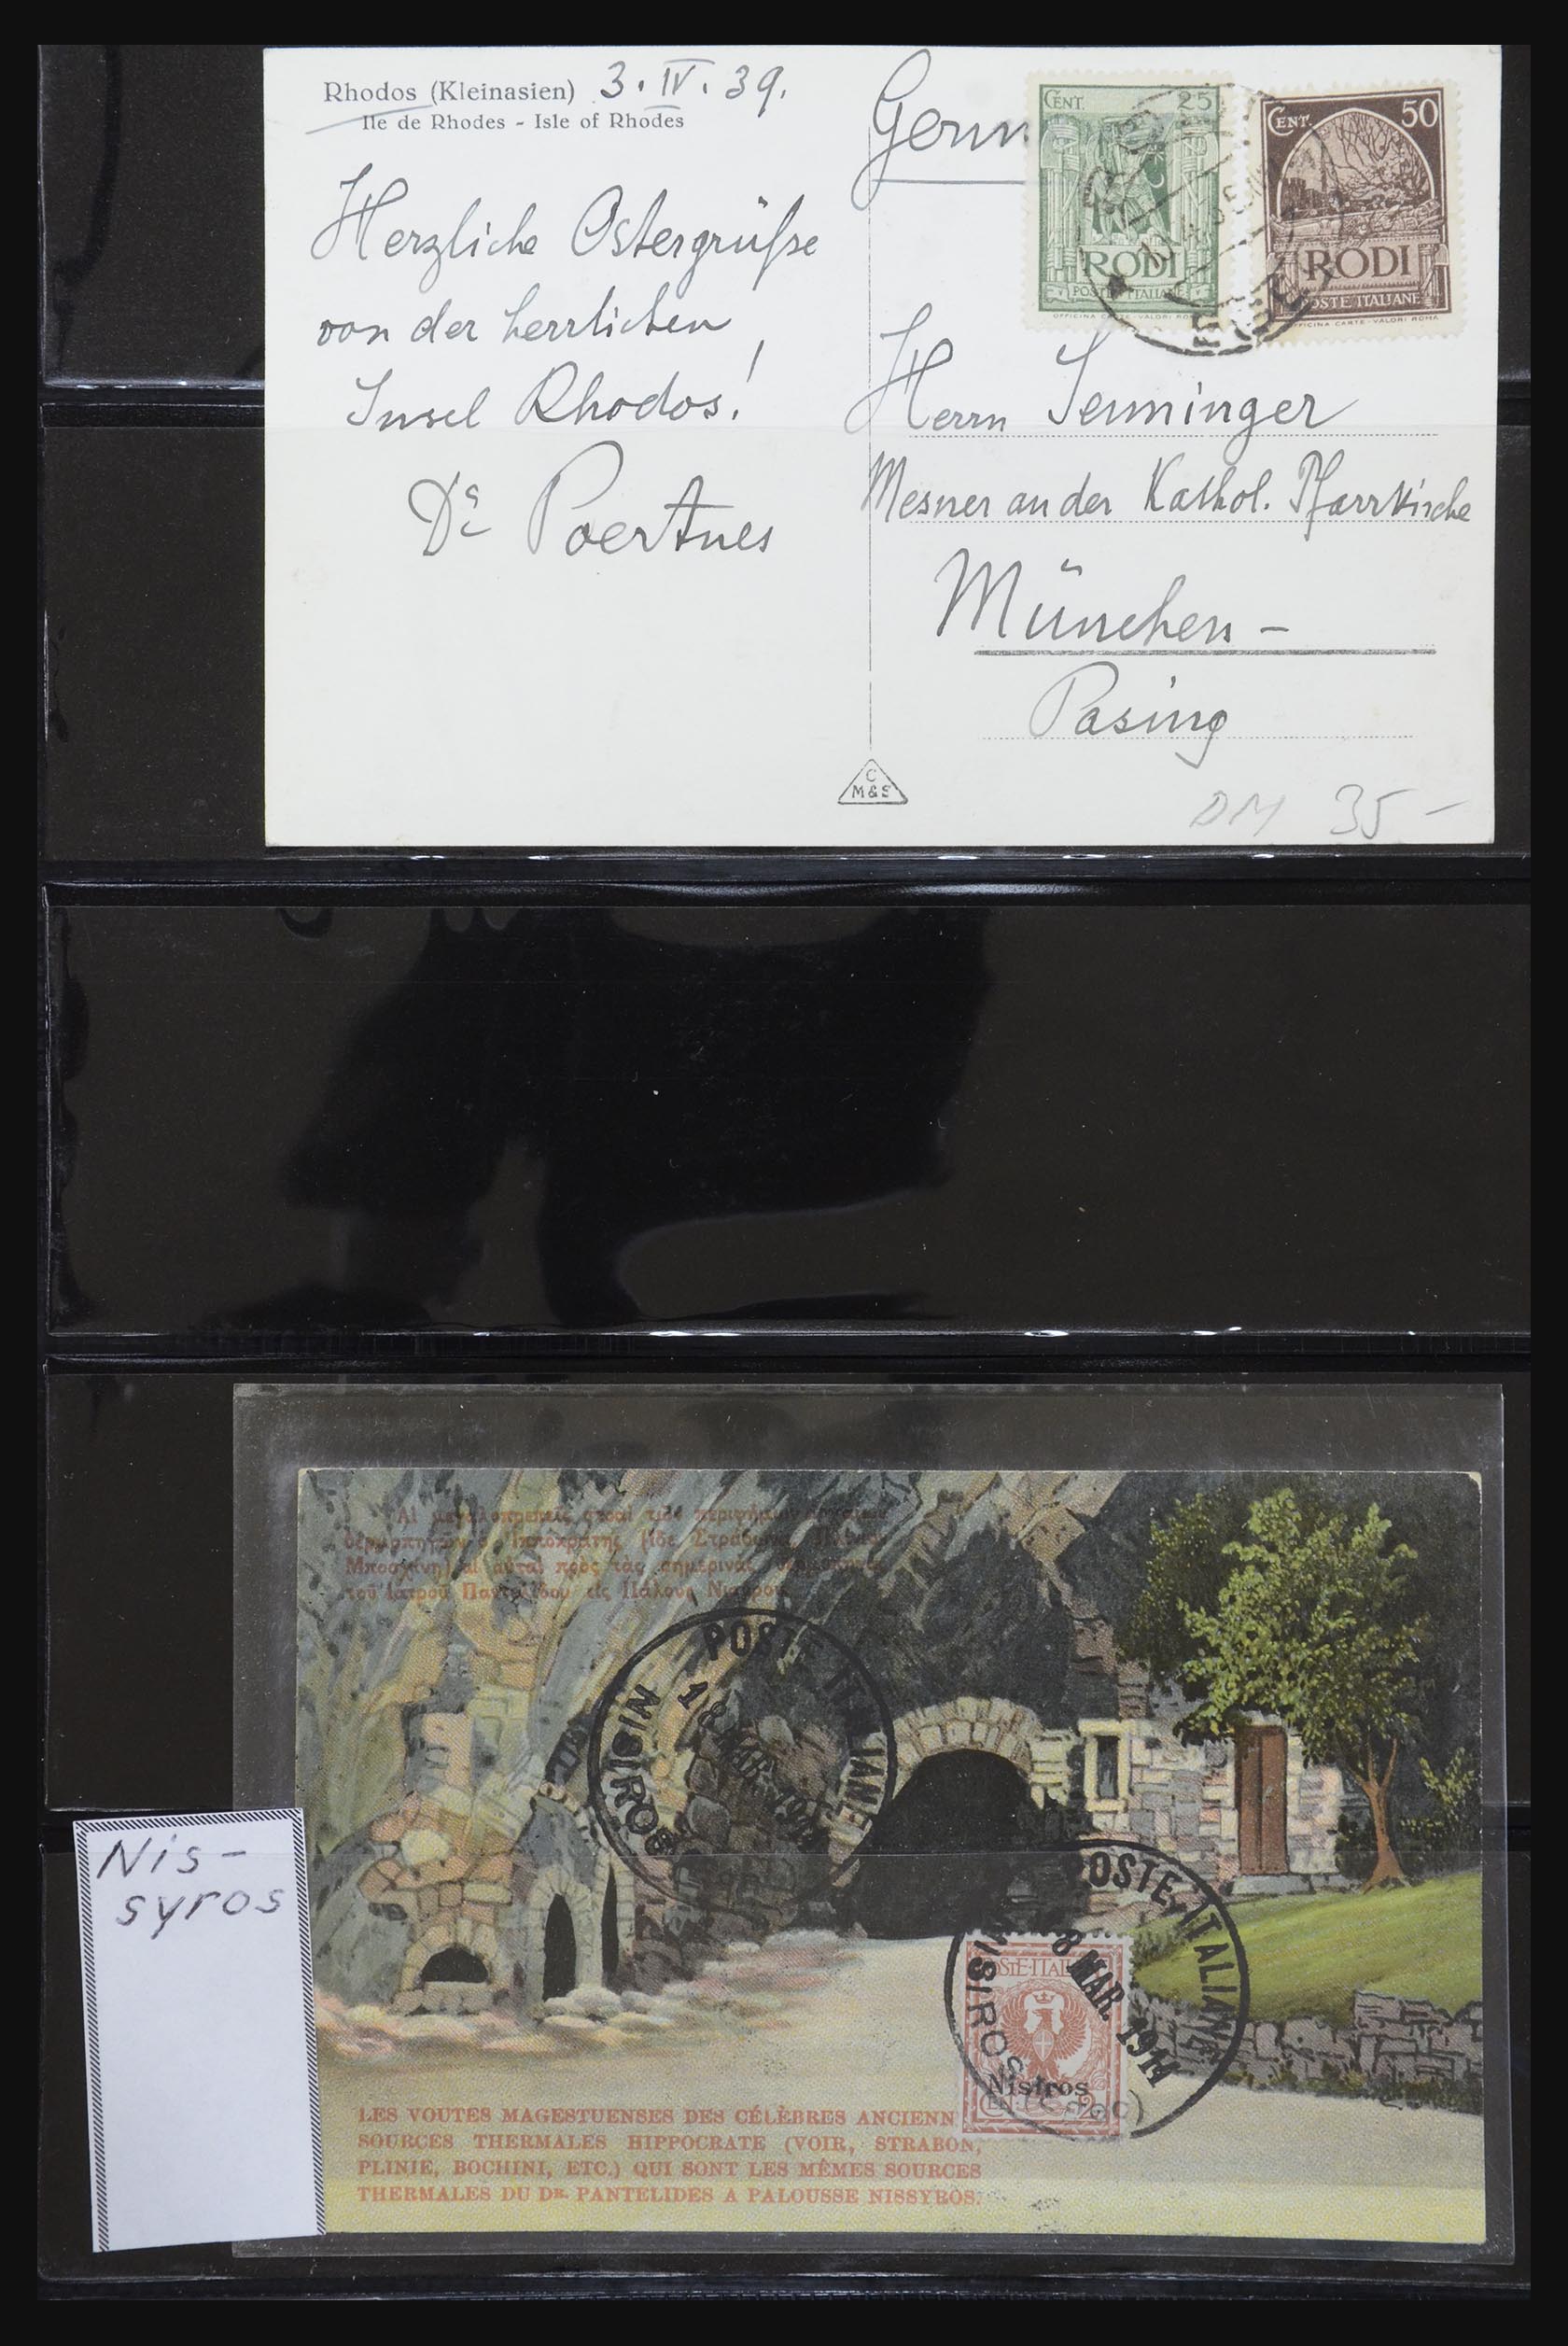 Rhodos (Kleinasien) 3. IV. 39.
Ile de Rhodes - Isle of Rhodes
Herzliche Ostergrüße
von der herrlichen
Insel Rhodos!
Dr Poertnes
Germ
CENT. 25
RODI
POSTE ITALIANE
OFFICINA CARTE-VALORI ROMA
CENT. 50
RODI
POSTE ITALIANE
OFFICINA CARTE-VALORI ROMA
Herrn Jenninger
Mesner an der Kathol. Pfarrkirche
München-
Pasing
C
M&S
DM 35-
Αἱ μεγαλοπρεπεῖς στοαὶ τῶν περιφήμων
Ἱπποκράτης (ἰδὲ Στράβωνα,
αἱ αὐταὶ πρὸς τὰς σημερινὰς
τοῦ Ἰατροῦ Παντελίδου εἰς Πάλους Νισύρου
POSTE ITALIANE
18 MAR. 1914
NISIROS
POSTE ITALIANE
8 MAR. 1914
NISIROS
(EGEO)
POSTE·ITAL
Nisiros
CEN. 2
Nis-
syros
LES VOUTES MAGESTUENSES DES CÉLÈBRES ANCIENN
SOURCES THERMALES HIPPOCRATE (VOIR, STRABON,
PLINIE, BOCHINI, ETC.) QUI SONT LES MÊMES SOURCES
THERMALES DU DR. PANTELIDES A PALOUSSE NISSYROS.